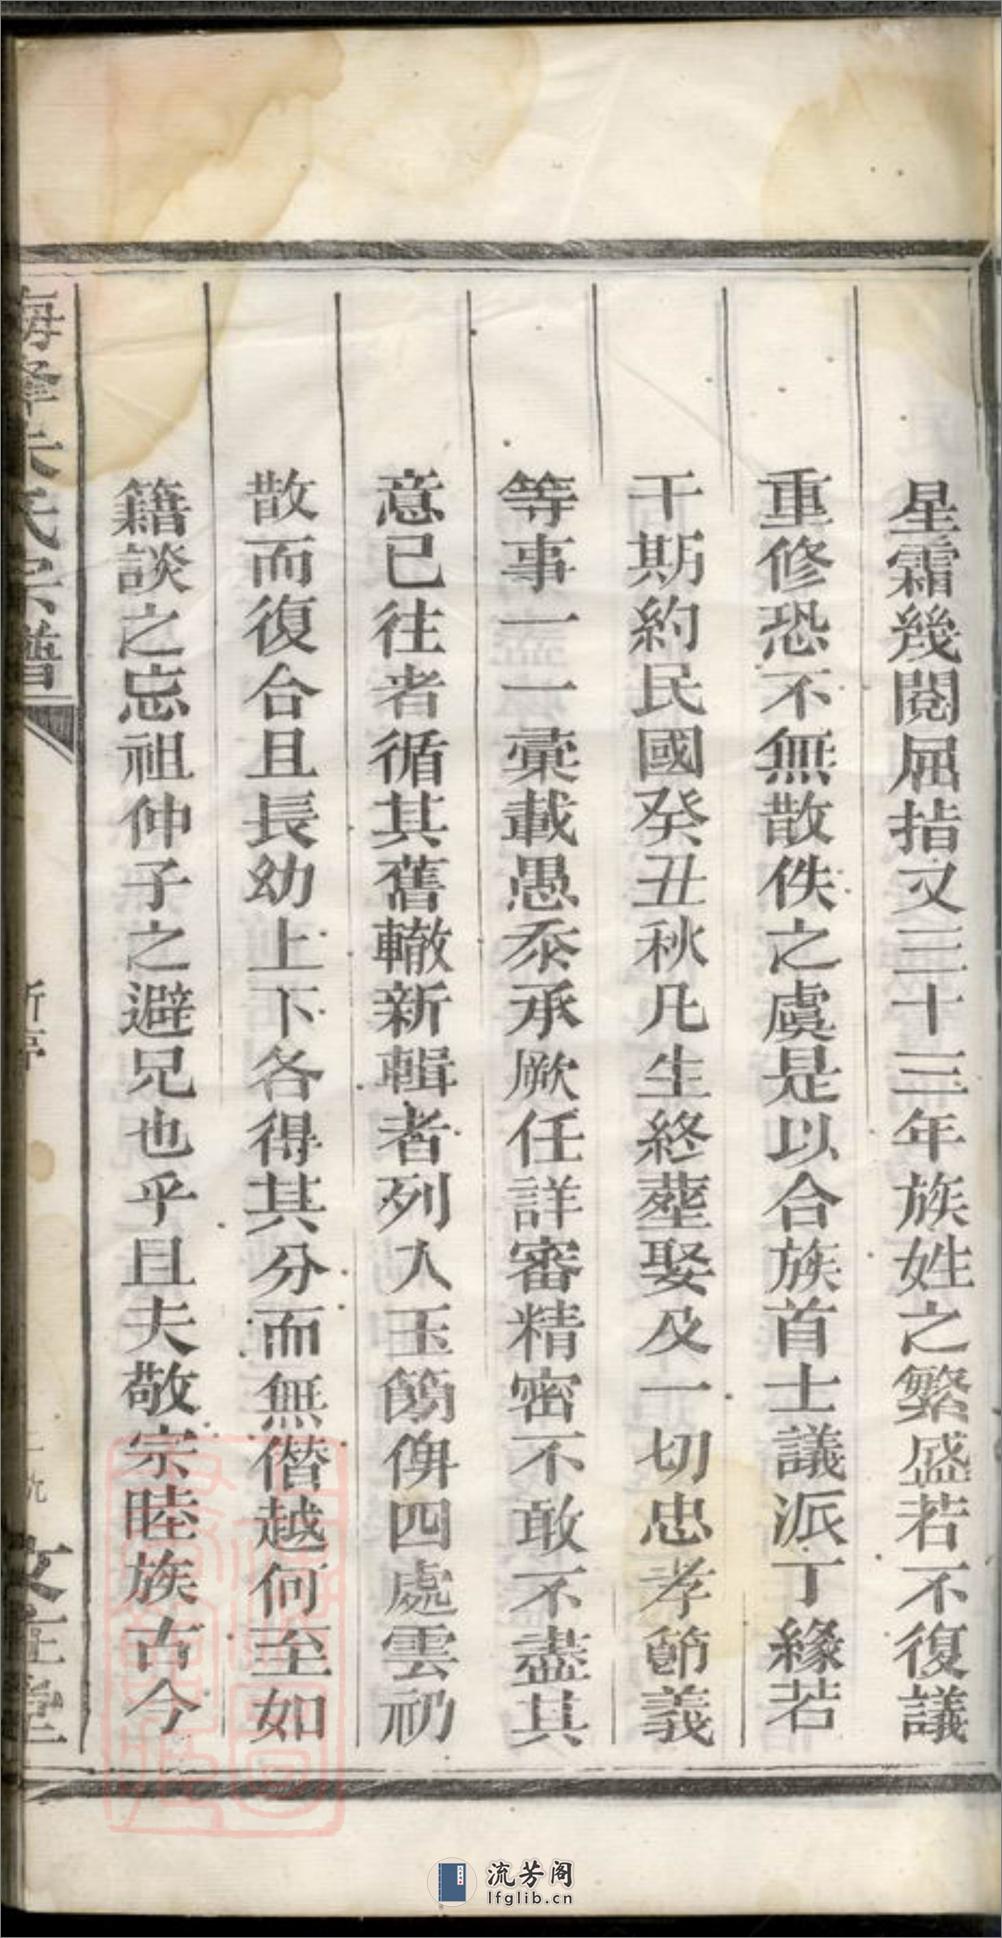 星霜幾閱屈指又三十三年族姓之繁盛若不復議
重修恐不無散佚之虞是以合族首士議派丁緣若
干期約民國癸丑秋凡生終塟娶及一切忠孝節義
等事一一彙載愚忝承厥任詳審精密不敢不盡其
意已往者循其舊轍新輯者列入玉笏俾四處雲礽
散而復合且長幼上下各得其分而無僭越何至如
籍談之忘祖仲子之避兄也乎且夫敬宗睦族古今
氏宗譜
流芳阁
lfglib.cn